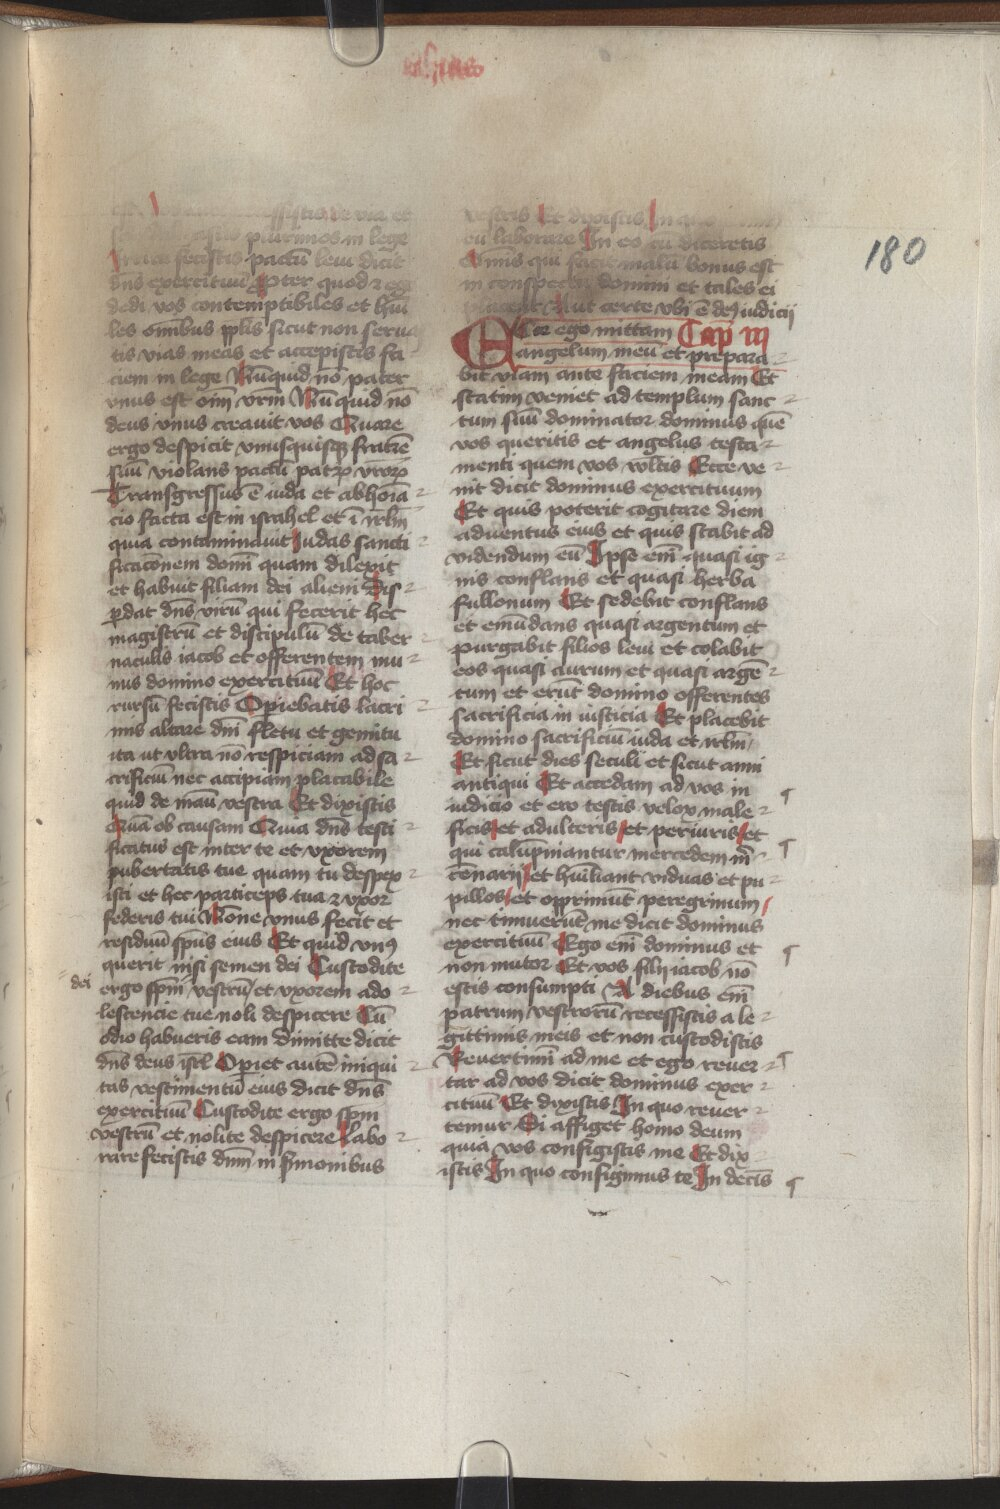 180
est
recessistis de via et
plurimos in lege
fecistis pactū leui dicit
dn̄s exercituū ꝓpter quod ⁊ ego
dedi vos contemptibiles et hūi
les omībus ppl̄is sicut non serua
tis vias meas et accepistis fa
ciem in lege Nūquid nō pater
vnus est oīm vr̄m Nūquid nō
deus vnus creauit vos Quare
ergo despicit vnusquisqꝫ fratrē
suū violans pactū patrꝝ vr̄orꝝ
Transgressus ē iuda et abhoīa
cio facta est in israhel et ī irl̄m
quia contaminauit Iudas sancti
ficacōnem domī quam dilexit
et habuit filiam dei alieni Dis
ꝑdat dn̄s virū qui fecerit hec
magistrū et discipulū de taber
naculis iacob et offerentem mu
nus domino exercituū Et hoc
rursū fecistis Opiebatis lacri
mis altare dn̄i fletu et gemitu
ita ut vltra nō respiciam ad sa
crificiū nec accipiam placabile
quid de manū vestra Et dixistis
Quā ob causam Quia dn̄s testi
ficatus est inter te et vxorem
pubertatis tue quam tu despex
isti et hec particeps tua ⁊ vxor
federis tui Nōne vnus fecit et
residuū sp̄us eius Et quid vnꝰ
querit nisi semen dei Custodite
dei
ergo sp̄m vestrū et vxorem ado
lescencie tue noli despicere Cū
odio habueris eam dimitte dicit
dn̄s deus isrl̄ Opiet autē iniqui
tas vestimentū eius dicit dn̄s
exercituū Custodite ergo sp̄m
vestrū et nolite despicere Labo
rare fecistis dn̄m in s̄monibus
vestris Et dixistis In quo
eū laborare In eo cū diceretis
Omīs qui facit malū bonus est
in conspectu domini et tales ei
placent Aut certe vbi ē deꝰ iudicii
Ecce ego mittam Cap̄ iii
angelum meū et prepara
bit viam ante faciem meam Et
statim veniet ad templum sanc
tum suū dominator dominus quē
vos queritis et angelus testa
menti quem vos vultis Ecce ve
nit dicit dominus exercituum
Et quis poterit cogitare diem
aduentus eius et quis stabit ad
videndum eū Ipse em̄ quasi ig
nis conflans et quasi herba
fullonum Et sedebit conflans
et emūdans quasi argentum et
purgabit filios leui et colabit
eos quasi aurum et quasi argē
tum et erūt domino offerentes
sacrificia in iusticia Et placebit
domino sacrificiū iuda et irl̄m
Et sicut dies seculi et sicut anni
antiqui Et accedam ad vos in
iudicio et ero testis velox male
ficis et adulteris et periuris et
qui calūpniantur mercedem m̄
cēnarii et hūiliant viduas et pu
pillos et opprimūt peregrinum
nec timuerūt me dicit dominus
exercituū Ego em̄ dominus et
non mutor Et vos filii iacob nō
estis consumpti A diebus em̄
patrum vestrorū recessistis a le
gittimis meis et non custodistis
Reuertimī ad me et ego reuer
tar ad vos dicit dominus exer
cituū Et dixistis In quo reuer
temur Si affiget homo deum
quia vos configistis me Et dix
istis In quo configimus te In decīs